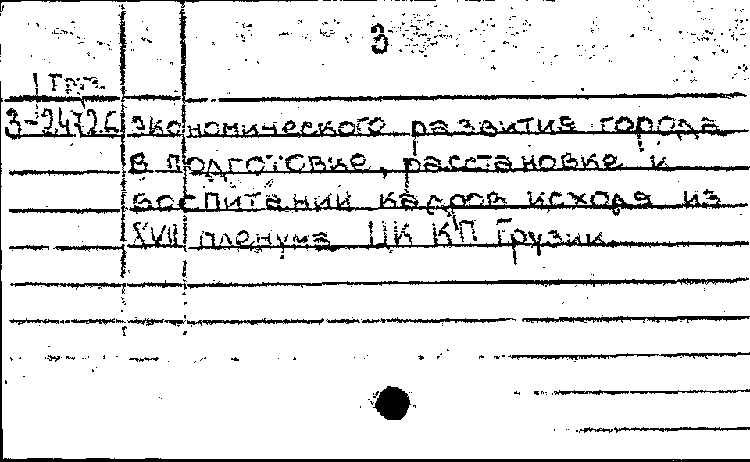 3
1 Груз.
3-24726 экономического развития города
в подготовке, расстановке и
воспитании кадров исходя из
XVIII пленума ЦК КП Грузии.